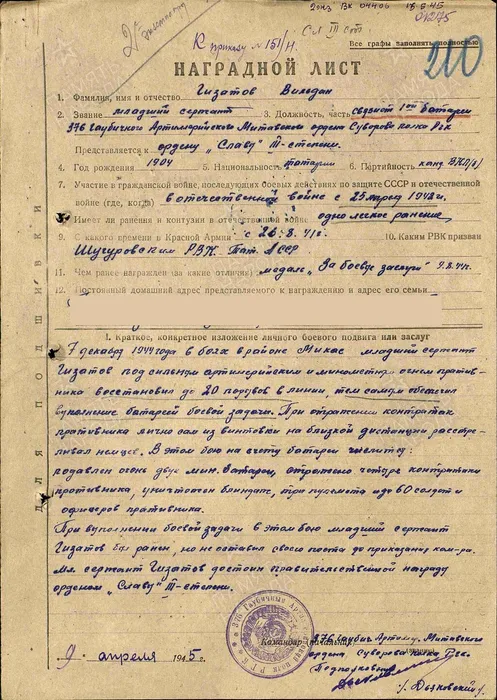 04275
К приказу № 151/н.
Все графы заполнять полностью
200
НАГРАДНОЙ ЛИСТ
1. Фамилия, имя и отчество Гизатов Вилодан
2. Звание младший сержант 3. Должность, часть связист 1ой батареи
376 Гаубичного Артиллерийского Митавского ордена Суворова полка РГК
Представляется к ордену „Слава" III-степени.
4. Год рождения 1904 5. Национальность татарин 6. Партийность канд. ВКП(б)
7. Участие в гражданской войне, последующих боевых действиях по защите СССР и отечественной
войне (где, когда) в отечественной войне с 25 марта 1942 г.
8. Имеет ли ранения и контузии в отечественной войне одно легкое ранение
9. С какого времени в Красной Армии с 26.8.41г. 10. Каким РВК призван
Шугуровским РВК Тат. АССР
11. Чем ранее награжден (за какие отличия) медаль „За боевые заслуги" 9.8.44г.
12. Постоянный домашний адрес представляемого к награждению и адрес его семьи
ДЛЯ ПОДШИВКИ
I. Краткое, конкретное изложение личного боевого подвига или заслуг
7 декабря 1944 года в боях в районе Микас младший сержант
Гизатов под сильным артиллерийским и минометным огнем против-
ника восстановил до 20 порывов в линии, тем самым обеспечил
выполнение батареей боевой задачи. При отражении контратак
противника лично сам из винтовки на близкой дистанции расстре-
ливал немцев. В этом бою на счету батареи числится:
подавлен огонь двух мин. батарей, отражено четыре контратаки
противника, уничтожен блиндаж, три пулемета и до 60 солдат и
офицеров противника.
При выполнении боевой задачи в этом бою младший сержант
Гизатов был ранен, но не оставил своего поста до приказания ком-ра.
Мл. сержант Гизатов достоин правительственной награды
орденом „Слава" III-степени.
Командир (начальник) 376 Гаубич. Артполка Митавского
ордена Суворова полка РГК
Подполковник
9 апреля 1945 г.